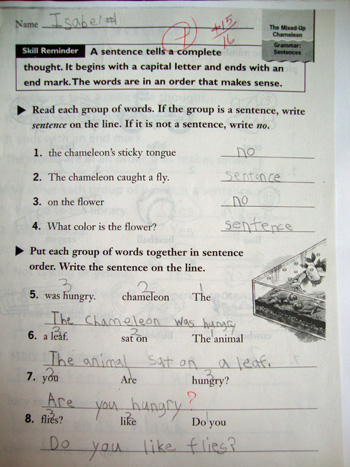 Name Isabel #1
+15
16
The Mixed-Up
Chameleon
Grammar:
Sentences
Skill Reminder A sentence tells a complete
thought. It begins with a capital letter and ends with an
end mark. The words are in an order that makes sense.
Read each group of words. If the group is a sentence, write
sentence on the line. If it is not a sentence, write no.
1. the chameleon's sticky tongue no
2. The chameleon caught a fly. sentence
3. on the flower no
4. What color is the flower? sentence
Put each group of words together in sentence
order. Write the sentence on the line.
3 2 1
5. was hungry. chameleon The
The Chameleon was hungry
3 2 1
6. a leaf. sat on The animal
The animal sat on a leaf.
2 1 3
7. you Are hungry?
Are you hungry?
3 2 1
8. flies? like Do you
Do you like flies?